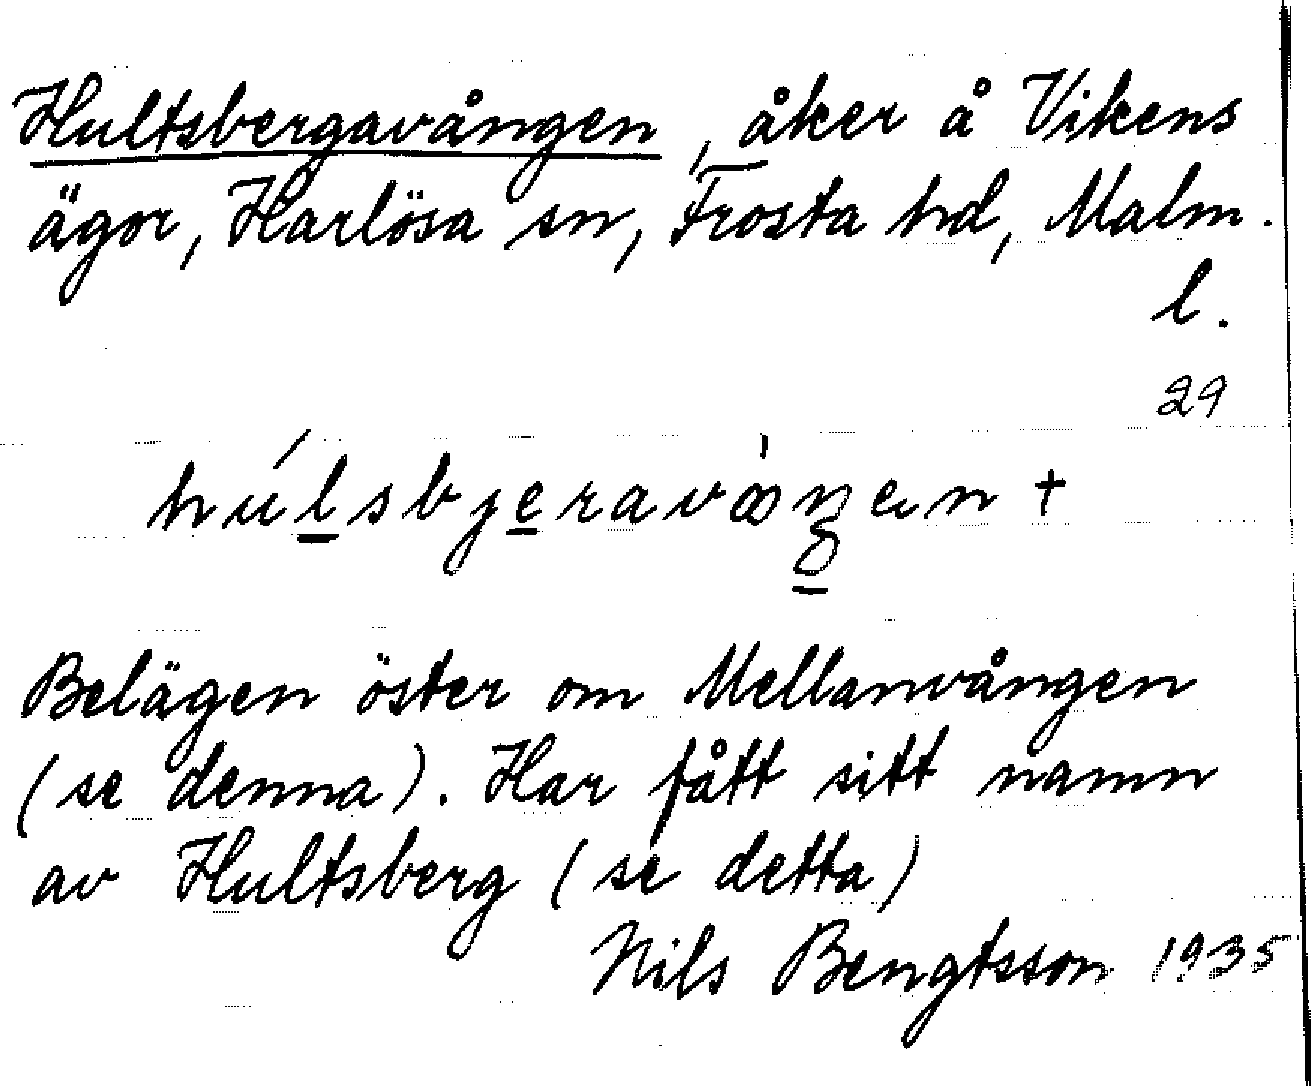 Hultsbergavången, åker å Vikens
ägor, Harlösa sn, Frosta hd, Malm.
l.
29
húlsbjeravàŋen +
Belägen öster om Mellanvången
(se denna). Har fått sitt namn
av Hultsberg (se detta)
Nils Bengtsson 1935